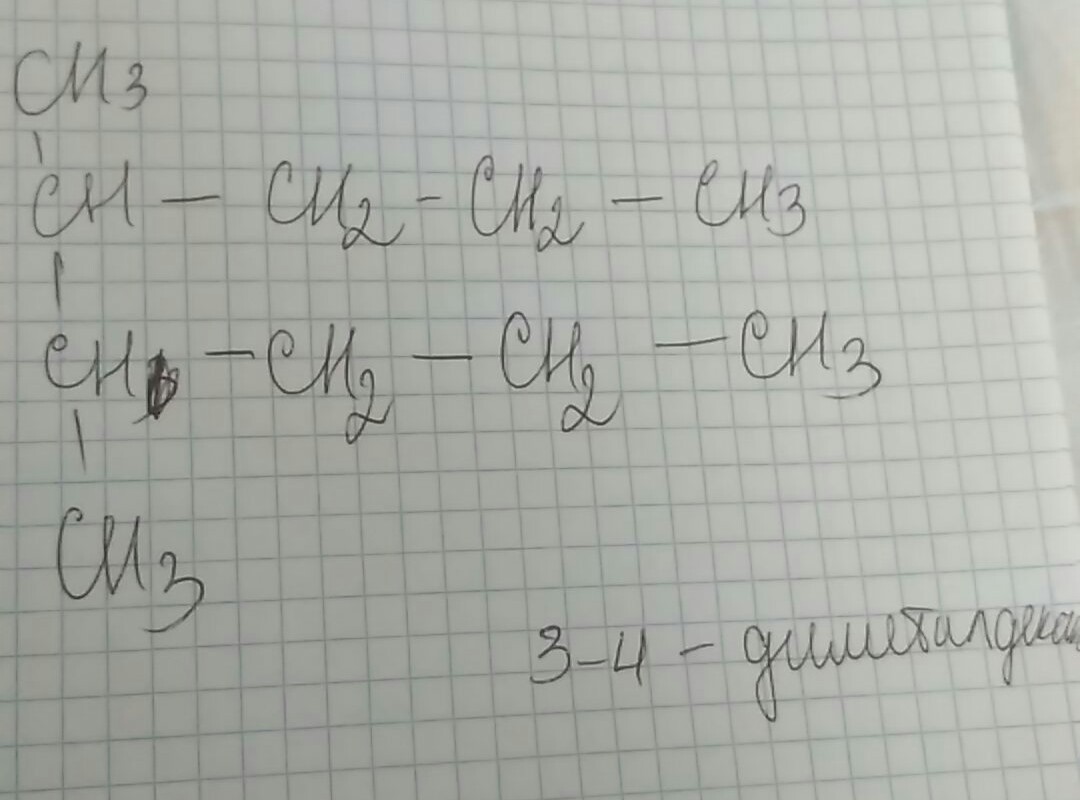 CH3
CH - CH2 - CH2 - CH3
CH - CH2 - CH2 - CH3
CH3
3-4 - диметилдекан